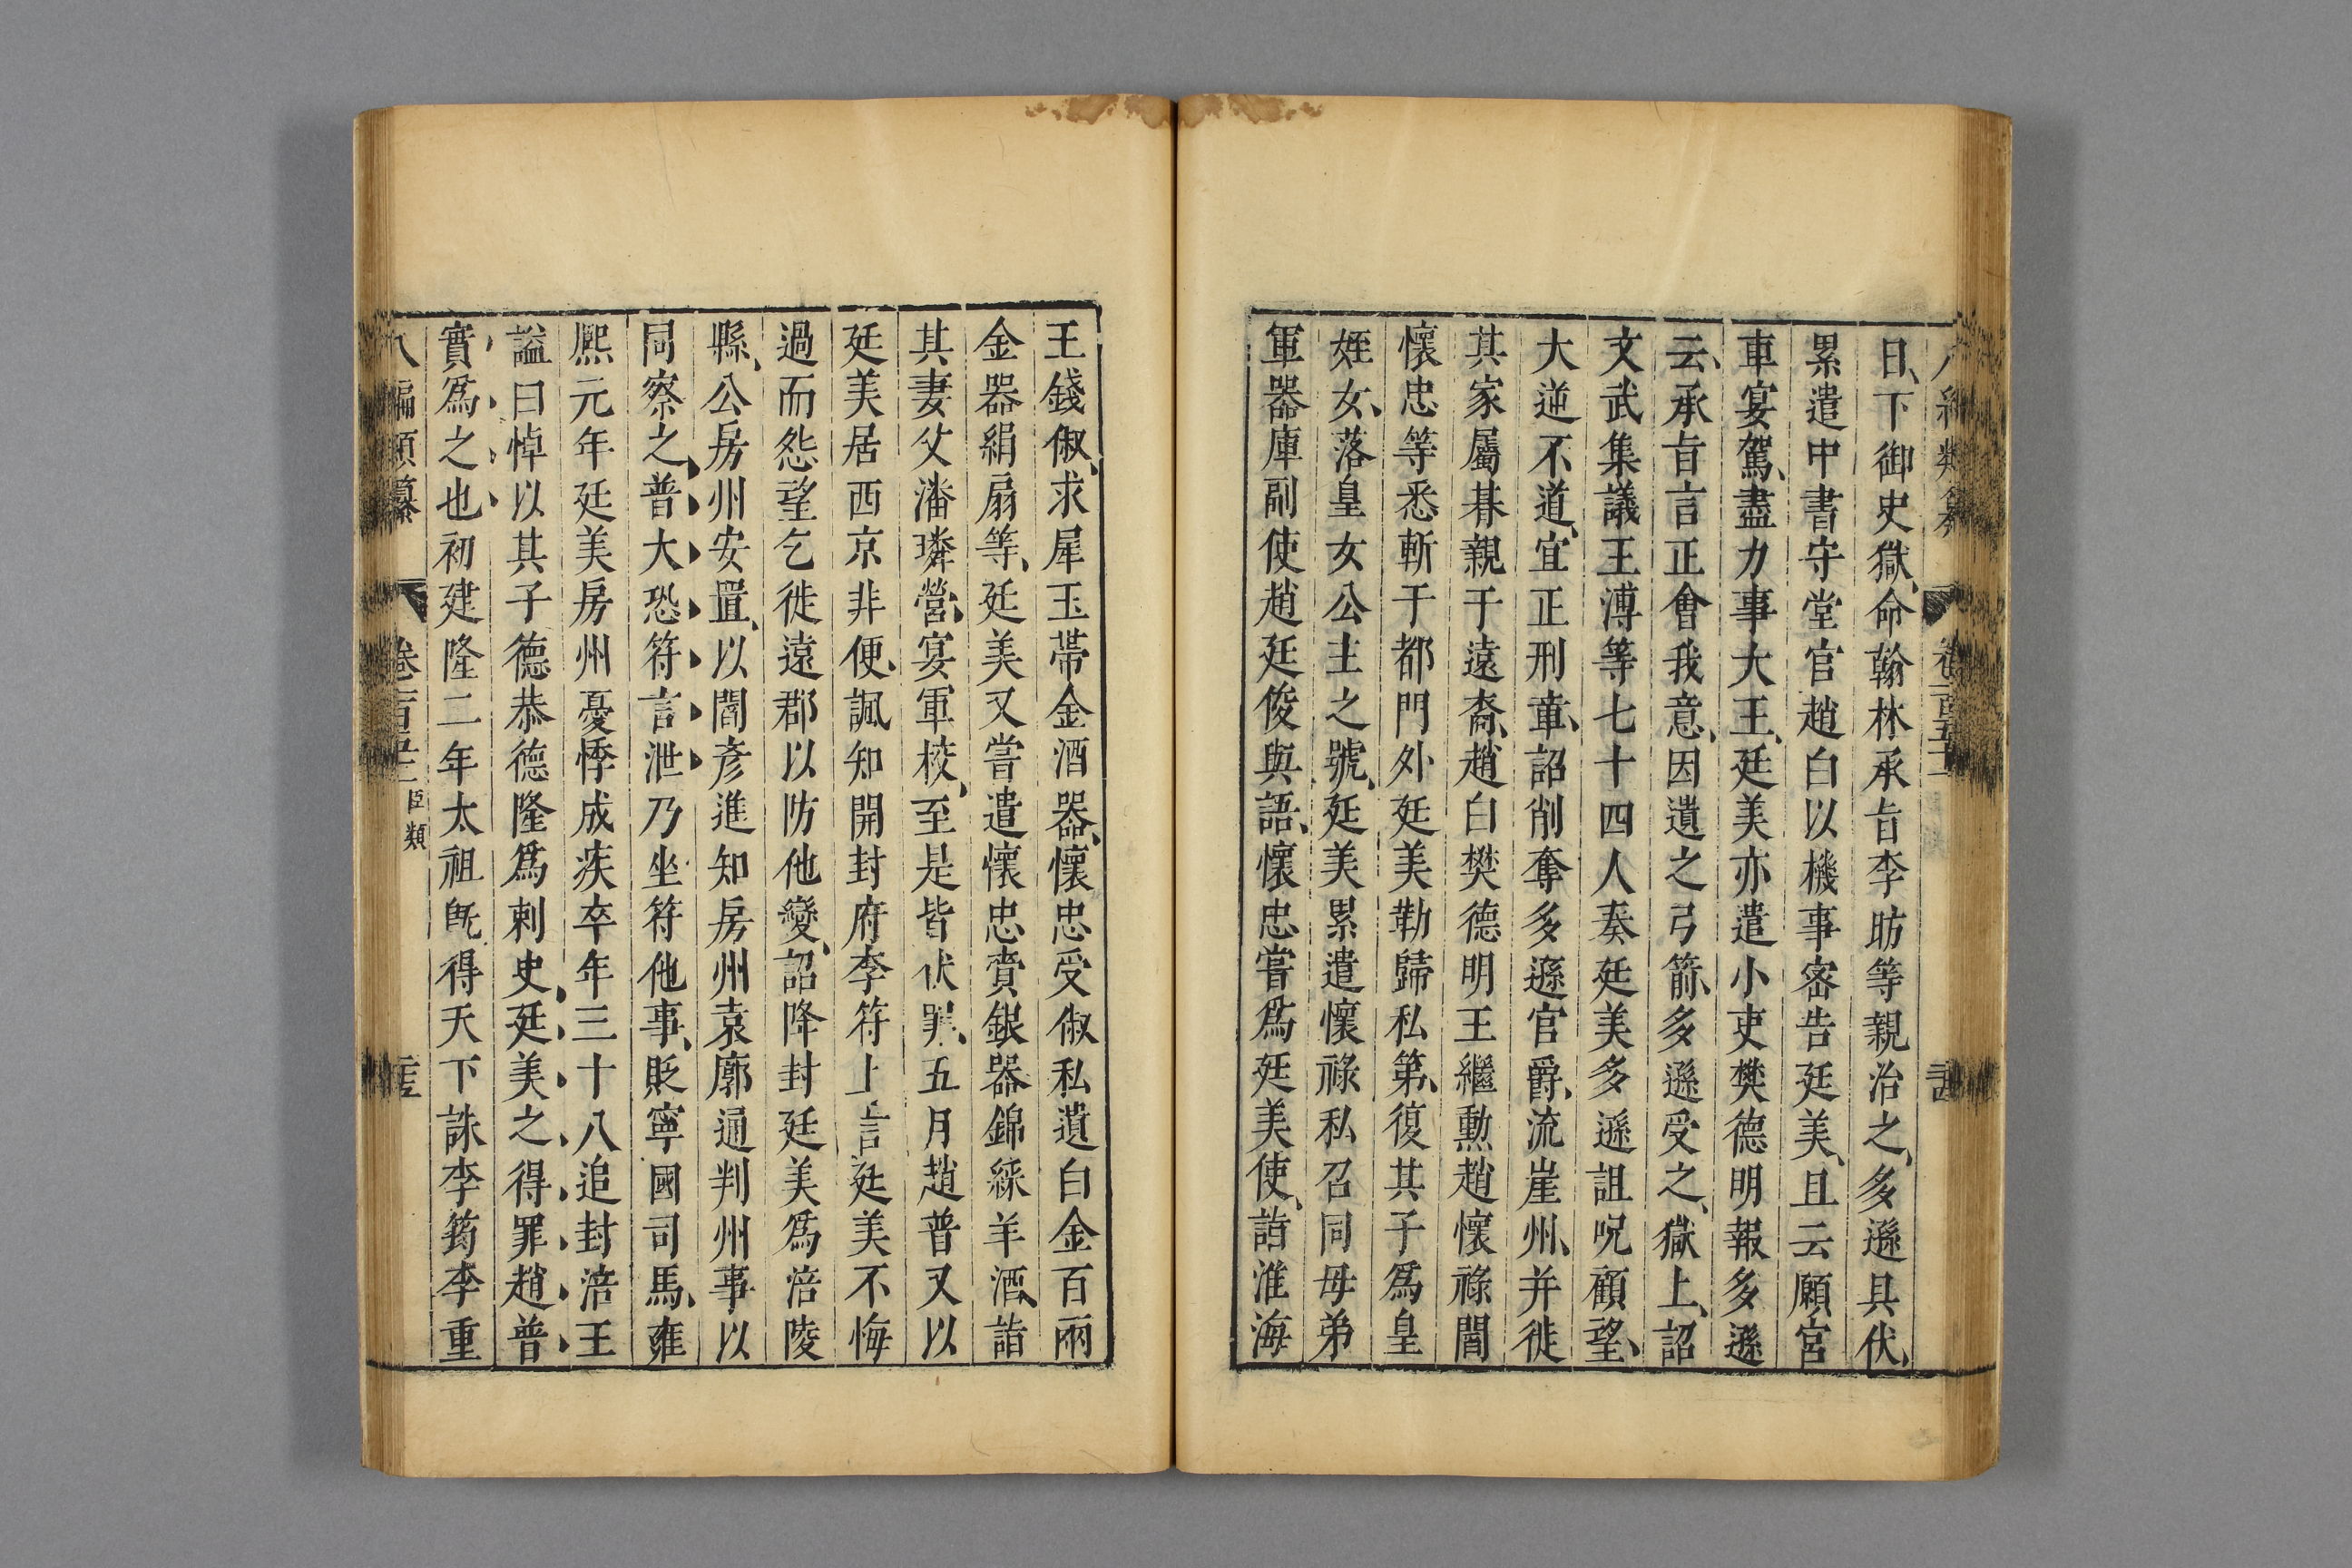 日、下御史獄、命翰林承旨李昉等親治之、多遜具伏、
累遣中書守堂官趙白以機事密告廷美、且云願宮
車宴駕、盡力事大王、廷美亦遣小吏樊德明報多遜
云、承旨言正會我意、因遺之弓箭、多遜受之、獄上、詔
文武集議王溥等七十四人奏廷美多遜詛呪顧望、
大逆不道、宜正刑章、詔削奪多遜官爵、流崖州、并徙
其家屬朞親于遠裔、趙白樊德明王繼勳趙懷祿閻
懷忠等悉斬于都門外廷美勒歸私第、復其子爲皇
姪女、落皇女公主之號、廷美累遣懷祿私召同母弟
軍器庫副使趙廷俊與語、懷忠嘗爲廷美使、詣淮海
王錢俶、求犀玉帶金酒器、懷忠受俶私遺白金百兩
金器絹扇等、廷美又嘗遣懷忠賫銀器錦綵羊酒、詣
其妻父潘璘營、宴軍校、至是皆伏罪、五月趙普又以
廷美居西京非便、諷知開封府李符上言廷美不悔
過而怨望乞徙遠郡以防他變、詔降封廷美爲涪陵
縣、公房州安置、以閻彦進知房州袁廓通判州事以
同察之、普大恐符言泄乃坐符他事、貶寧國司馬、雍
熈元年廷美房州憂悸成疾卒年三十八追封涪王
謚曰悼以其子德恭德隆爲刺史、廷美之得罪趙普
實爲之也初建隆二年太祖旣得天下誅李筠李重
八編類纂 卷 臣類